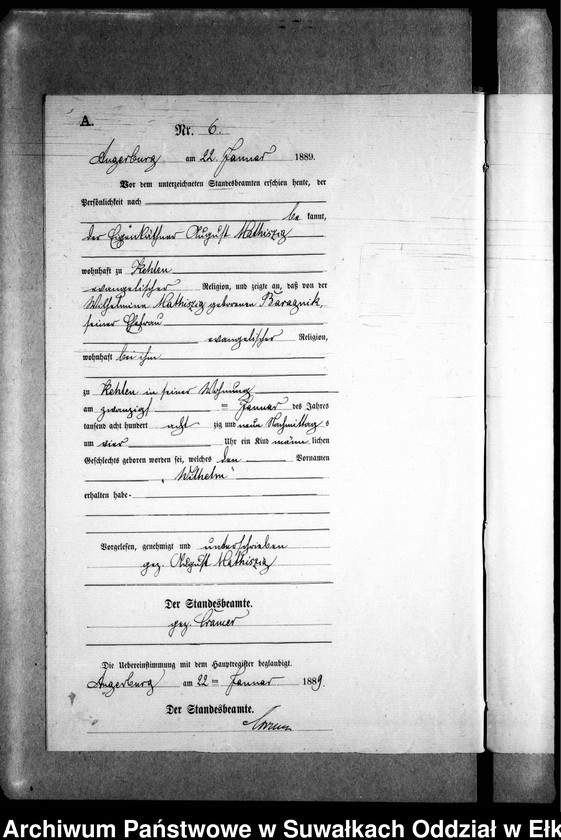 A.
Nr. 6.
Angerburg am 22. Januar 1889.
Vor dem unterzeichneten Standesbeamten erschien heute, der
Persönlichkeit nach
be kannt,
der Eigenkäthner August Mathiszig
wohnhaft zu Kehlen
evangelischer Religion, und zeigte an, daß von der
Wilhelmine Mathiszig geborenen Baraznik,
seiner Ehefrau
evangelischer Religion,
wohnhaft bei ihm
zu Kehlen in seiner Wohnung
am zwanzigst = Januar des Jahres
tausend acht hundert acht zig und neun Nachmittag s
um vier Uhr ein Kind männ lichen
Geschlechts geboren worden sei, welches den Vornamen
„Wilhelm“
erhalten habe.
Vorgelesen, genehmigt und unterschrieben
gez. August Mathiszig
Der Standesbeamte.
gez. Cramer
Die Uebereinstimmung mit dem Hauptregister beglaubigt.
Angerburg am 22 = Januar 1889.
Der Standesbeamte.
Cramer
Archiwum Państwowe w Suwałkach Oddział w Ełk